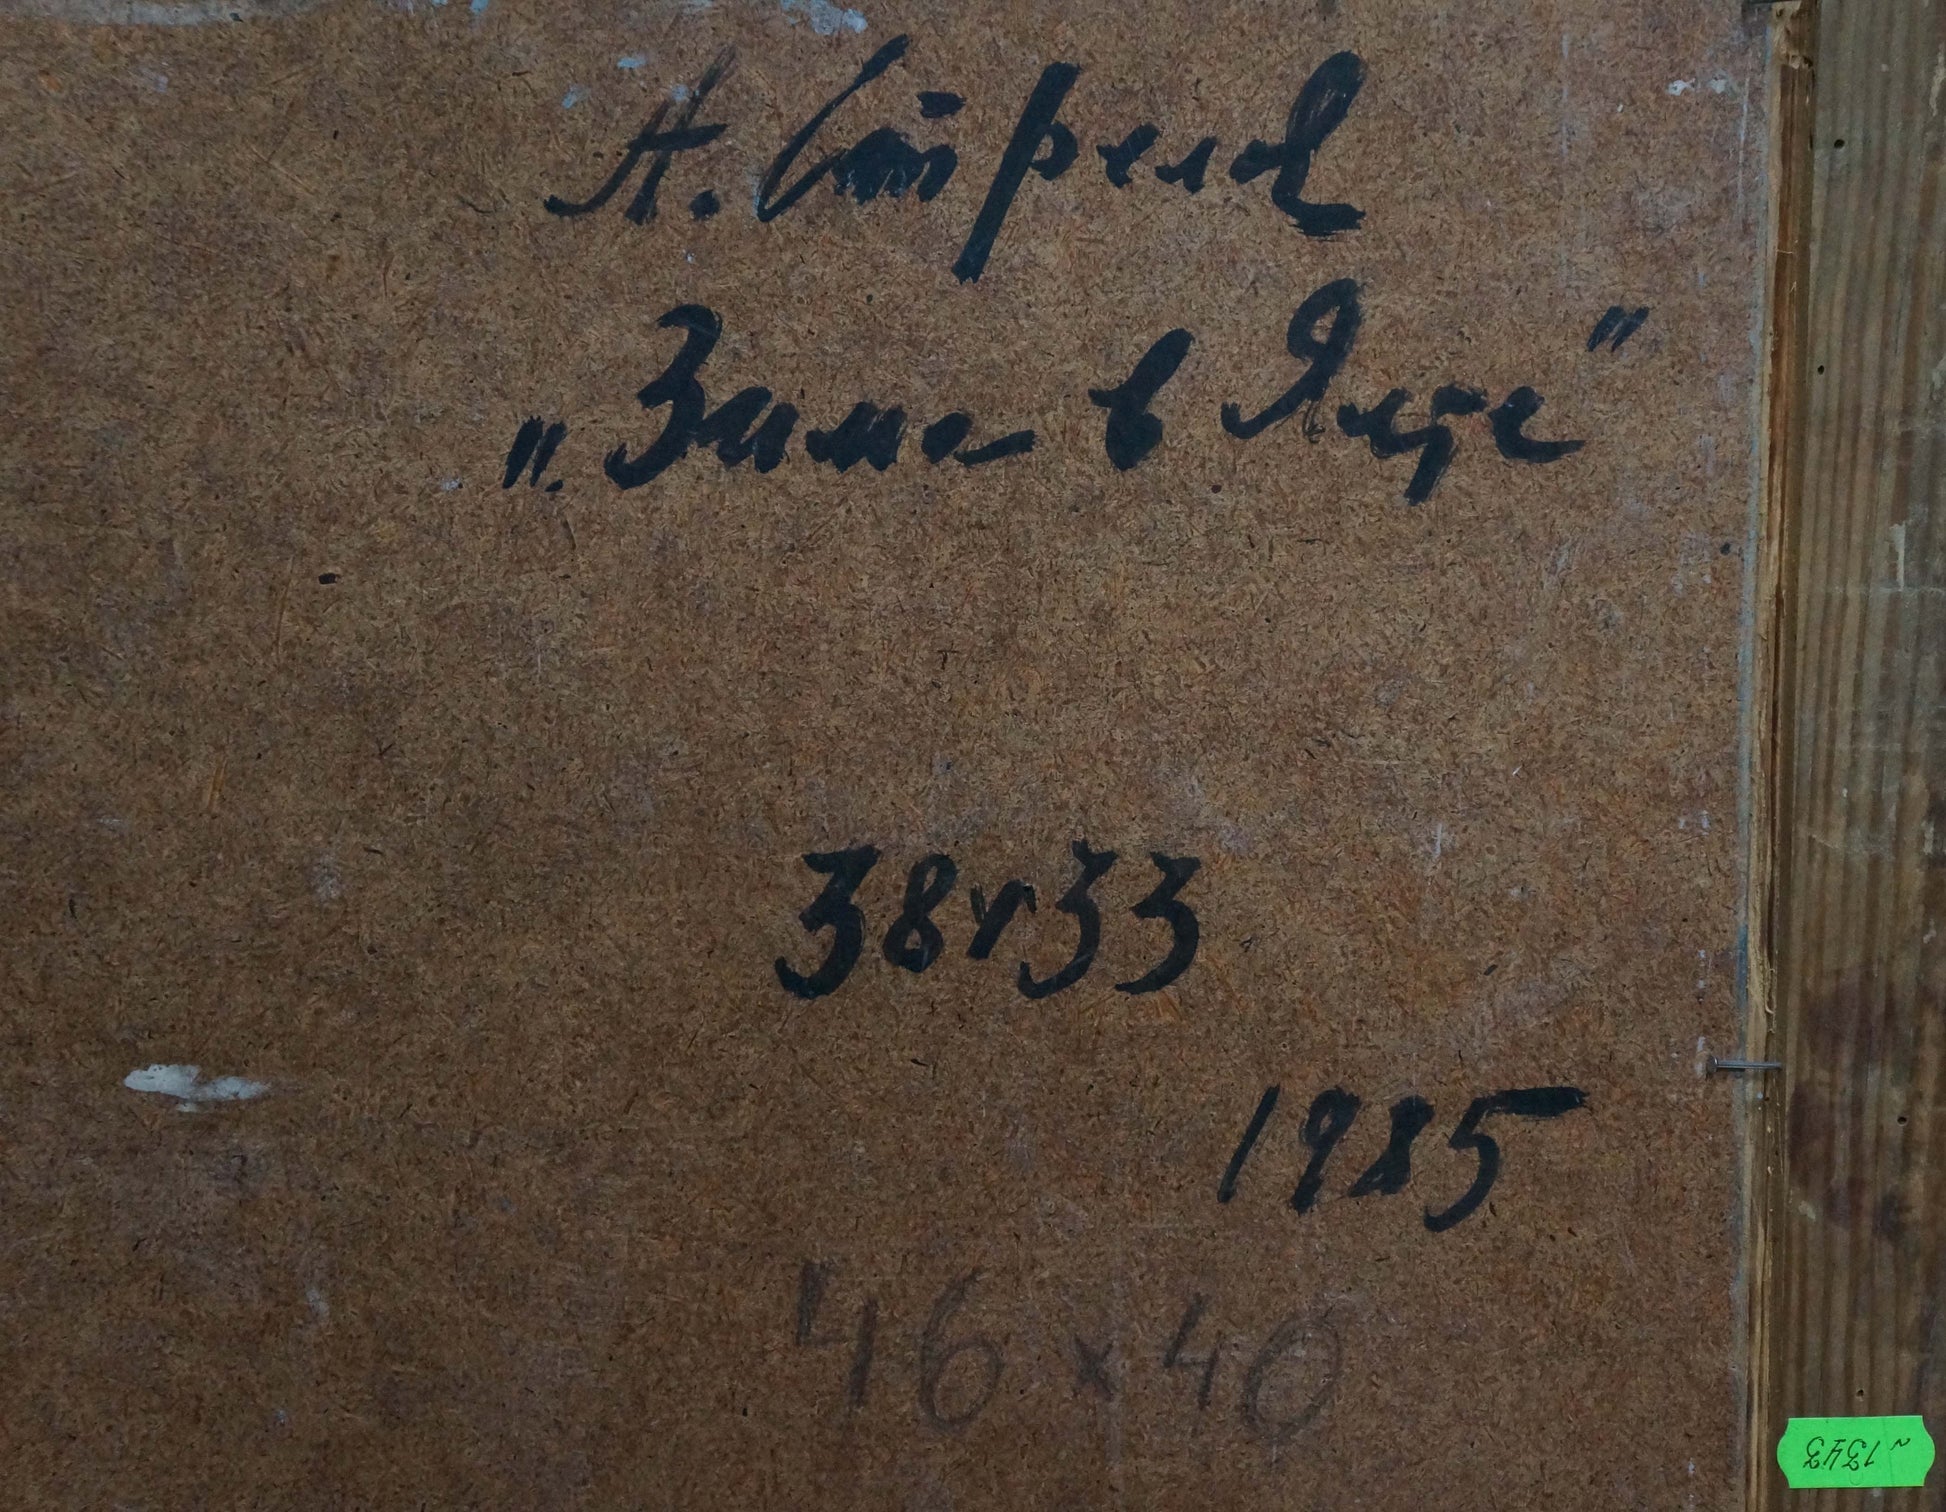 А. Стрелов
„Зима в Ялте"
38х33
1985
46 х 40
~ 1343